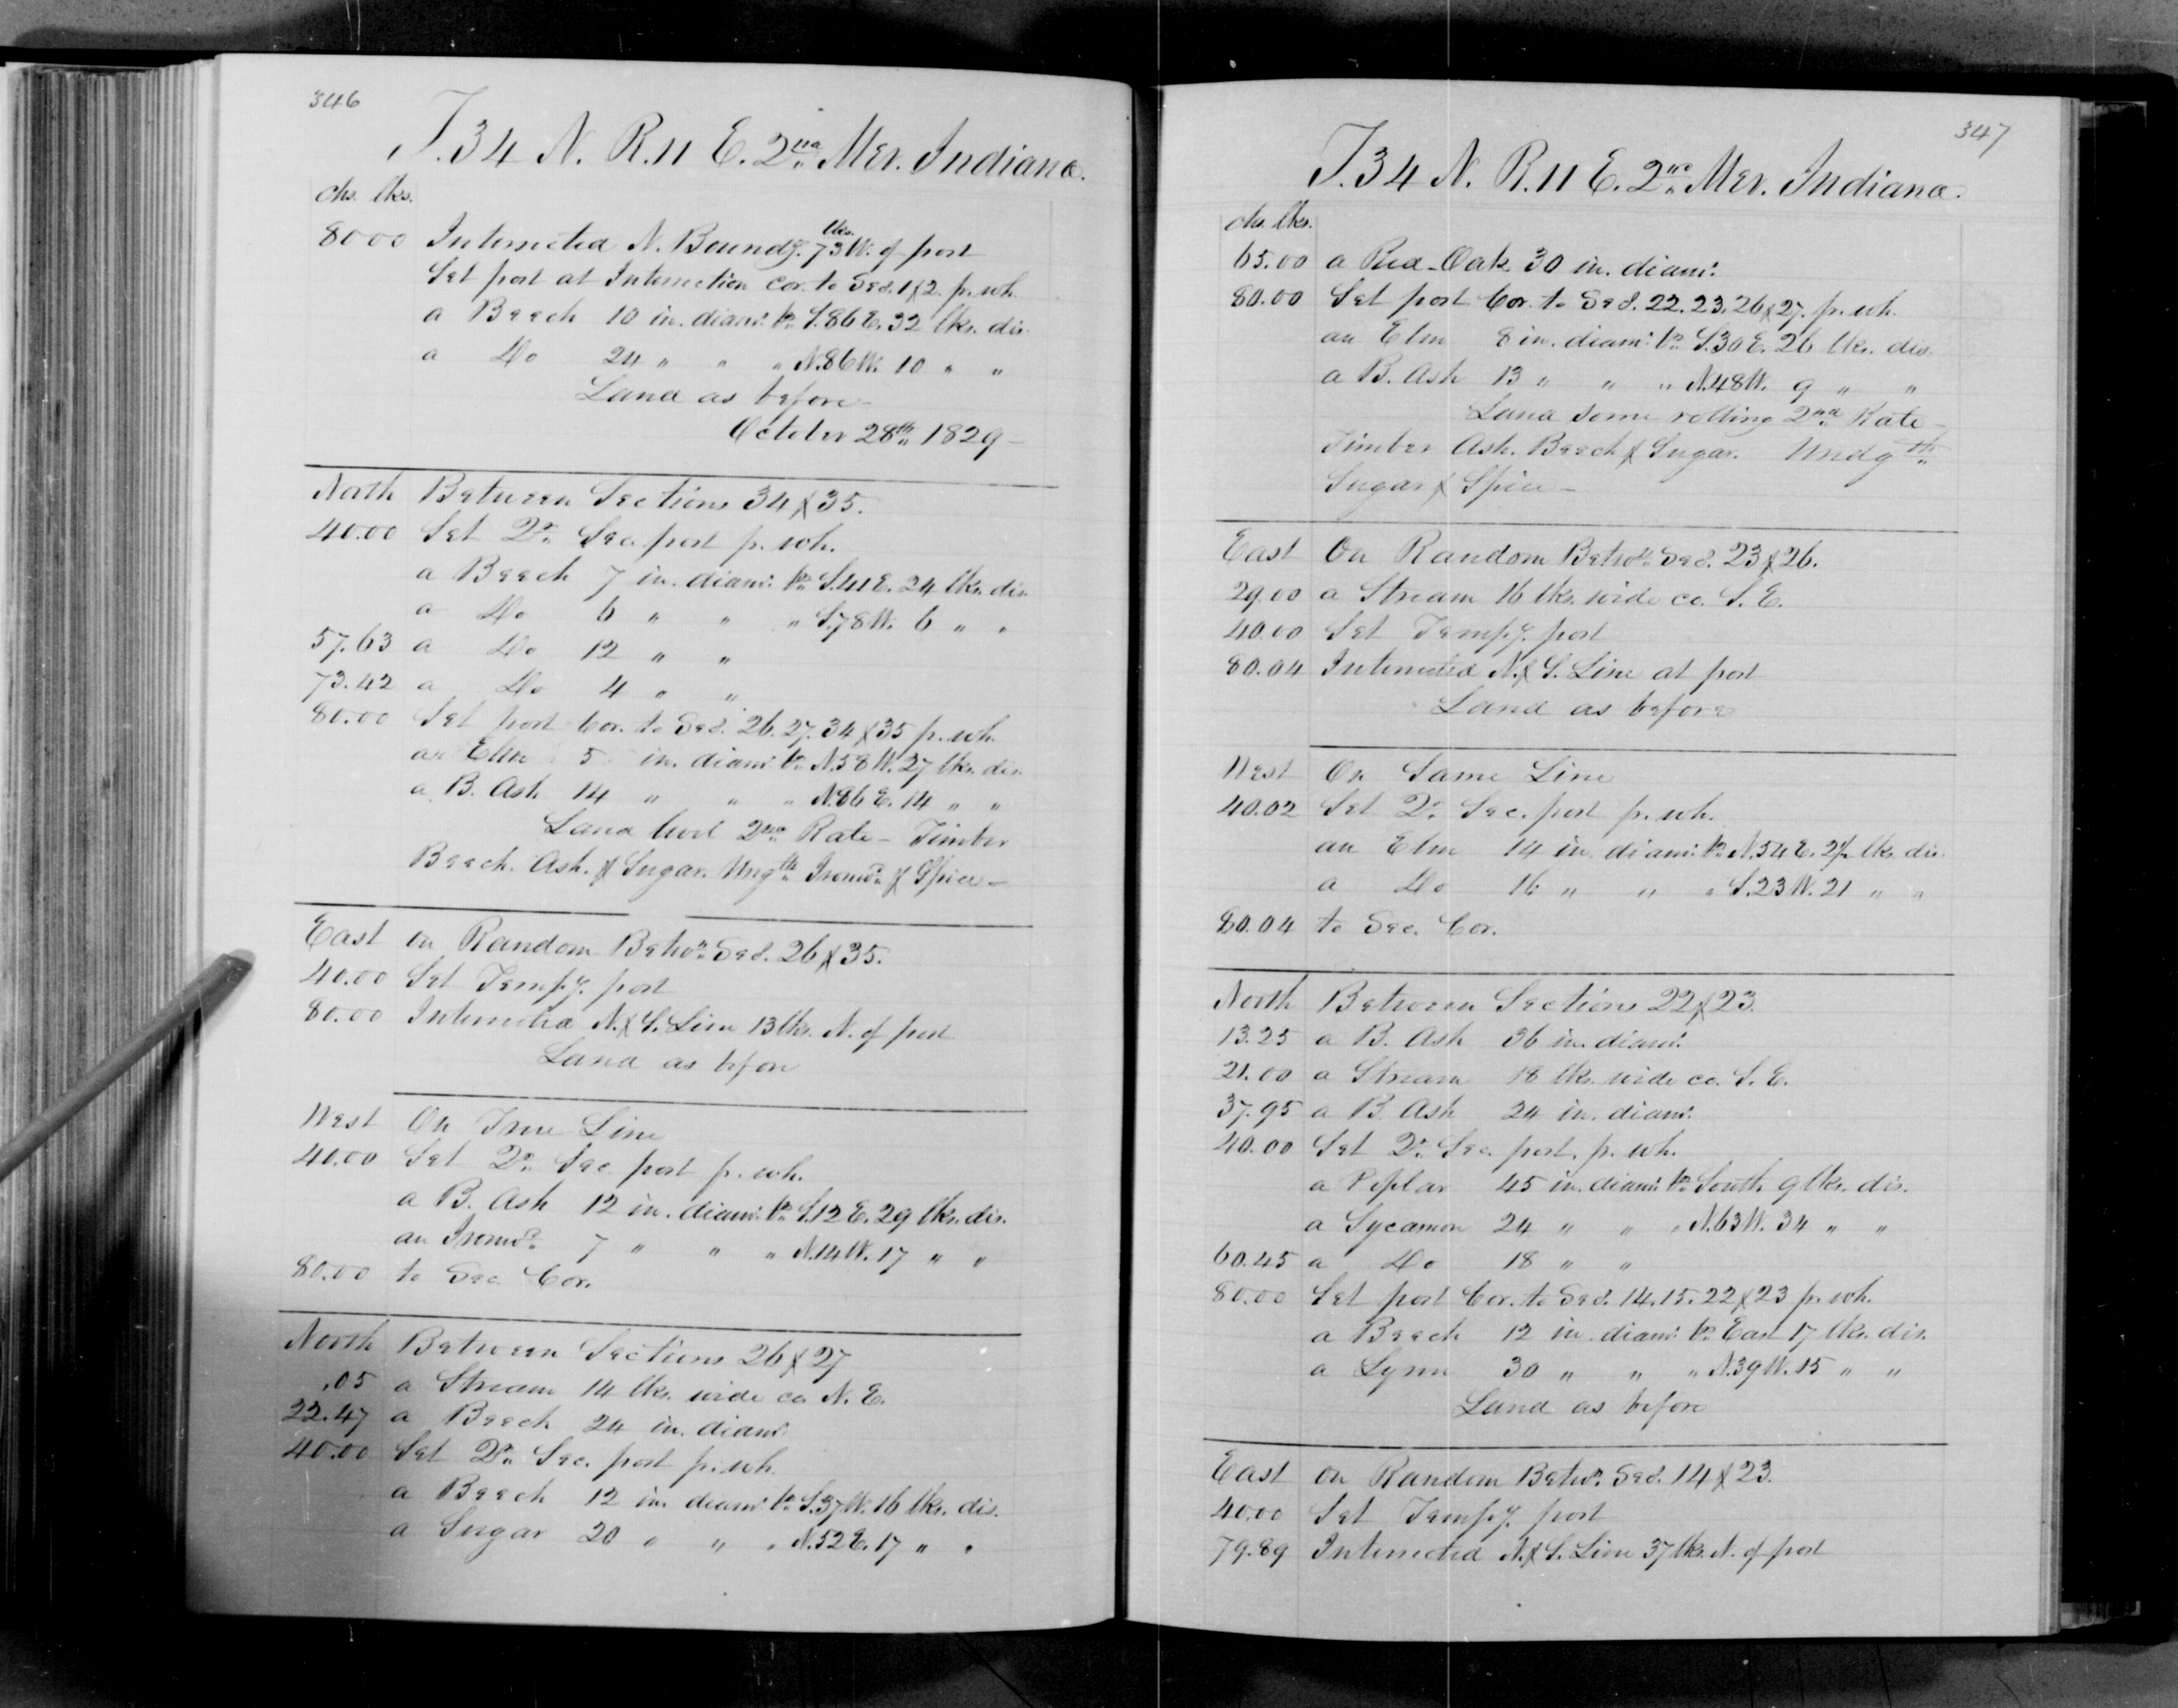 346
T.34 N. R.11 E. 2nd Mer. Indiana.
chs. lks.
80.00 Intersected N. Boundy. 73 lks. W. of post
Set post at Intersection cor. to Secs. 1 & 2. p. wh.
a Beech 10 in. diamr. br. S.86 E. 32 lks. dis.
a Do 24 " " " N.86 W. 10 " "
Land as before —
October 28th 1829 —
North Between Sections 34 & 35.
40.00 Set Qr. Sec. post p. wh.
a Beech 7 in. diamr. br. S.41 E. 24 lks. dis.
a Do 6 " " " S.78 W. 6 " "
57.63 a Do 12 " "
73.42 a Do 4 " "
80.00 Set post Cor. to Secs. 26. 27. 34 & 35 p. wh.
an Elm 5 in. diamr. br. N.58 W. 27 lks. dis.
a B. Ash 14 " " " N.86 E. 14 " "
Land level 2nd Rate — Timber
Beech. Ash. & Sugar. Ungth. Ironwd. & Spice —
East on Random Betwn. Secs. 26 & 35.
40.00 Set Tempy. post
80.00 Intersected N. & S. Line 13 lks. N. of post
Land as before
West On True Line
40.00 Set Qr. Sec post p. wh.
a B. Ash 12 in. diamr. br. S.12 E. 29 lks. dis.
an Ironwd. 7 " " " N.14 W. 17 " "
80.00 to Sec. Cor.
North Between Sections 26 & 27
.05 a Stream 14 lks. wide co. N. E.
22.47 a Beech 24 in. diamr.
40.00 Set Qr. Sec. post p. wh.
a Beech 12 in. diamr. br. S.37 W. 16 lks. dis.
a Sugar 20 " " " N.52 E. 17 " "
347
T.34 N. R.11 E. 2nd Mer. Indiana.
chs. lks.
65.00 a Red-Oak 30 in. diamr.
80.00 Set post Cor. to Secs. 22. 23. 26 & 27. p. wh.
an Elm 8 in. diamr. br. S.30 E. 26 lks. dis.
a B. Ash 13 " " " N.48 W. 9 " "
Land some rolling 2nd Rate —
Timber Ash. Beech & Sugar. Undgth.
Sugar & Spice —
East On Random Betwn. Secs. 23 & 26.
29.00 a Stream 16 lks. wide co. S. E.
40.00 Set Tempy. post
80.04 Intersected N. & S. Line at post
Land as before
West On Same Line
40.02 Set Qr. Sec. post p. wh.
an Elm 14 in. diamr. br. N.54 E. lks. dis.
a Do 16 " " " S.23 W. 21 " "
80.04 to Sec. Cor.
North Between Sections 22 & 23.
13.25 a B. Ash 36 in. diamr.
21.00 a Stream 18 lks. wide co. S. E.
37.95 a B. Ash 24 in. diamr.
40.00 Set Qr. Sec. post. p. wh.
a Poplar 45 in. diamr. br. South 9 lks. dis.
a Sycamore 24 " " " N.63 W. 34 " "
60.45 a Do 18 " "
80.00 Set post Cor. to Secs. 14. 15. 22 & 23 p. wh.
a Beech 12 in. diamr. br. East 17 lks. dis.
a Lynn 30 " " " N.39 W. 15 " "
Land as before
East on Random Betwn. Secs. 14 & 23.
40.00 Set Tempy. post
79.89 Intersected N. & S. Line 37 lks. N. of post